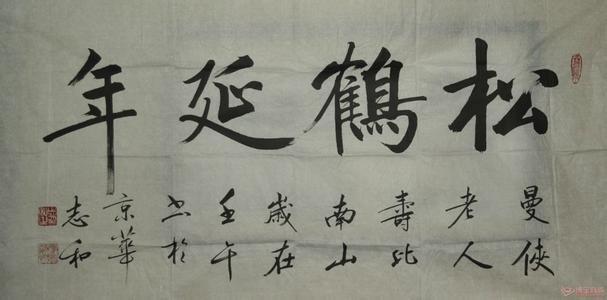 松鹤延年
曼侠
老人
壽比
南山
歲在
壬午
书於
京華
志和